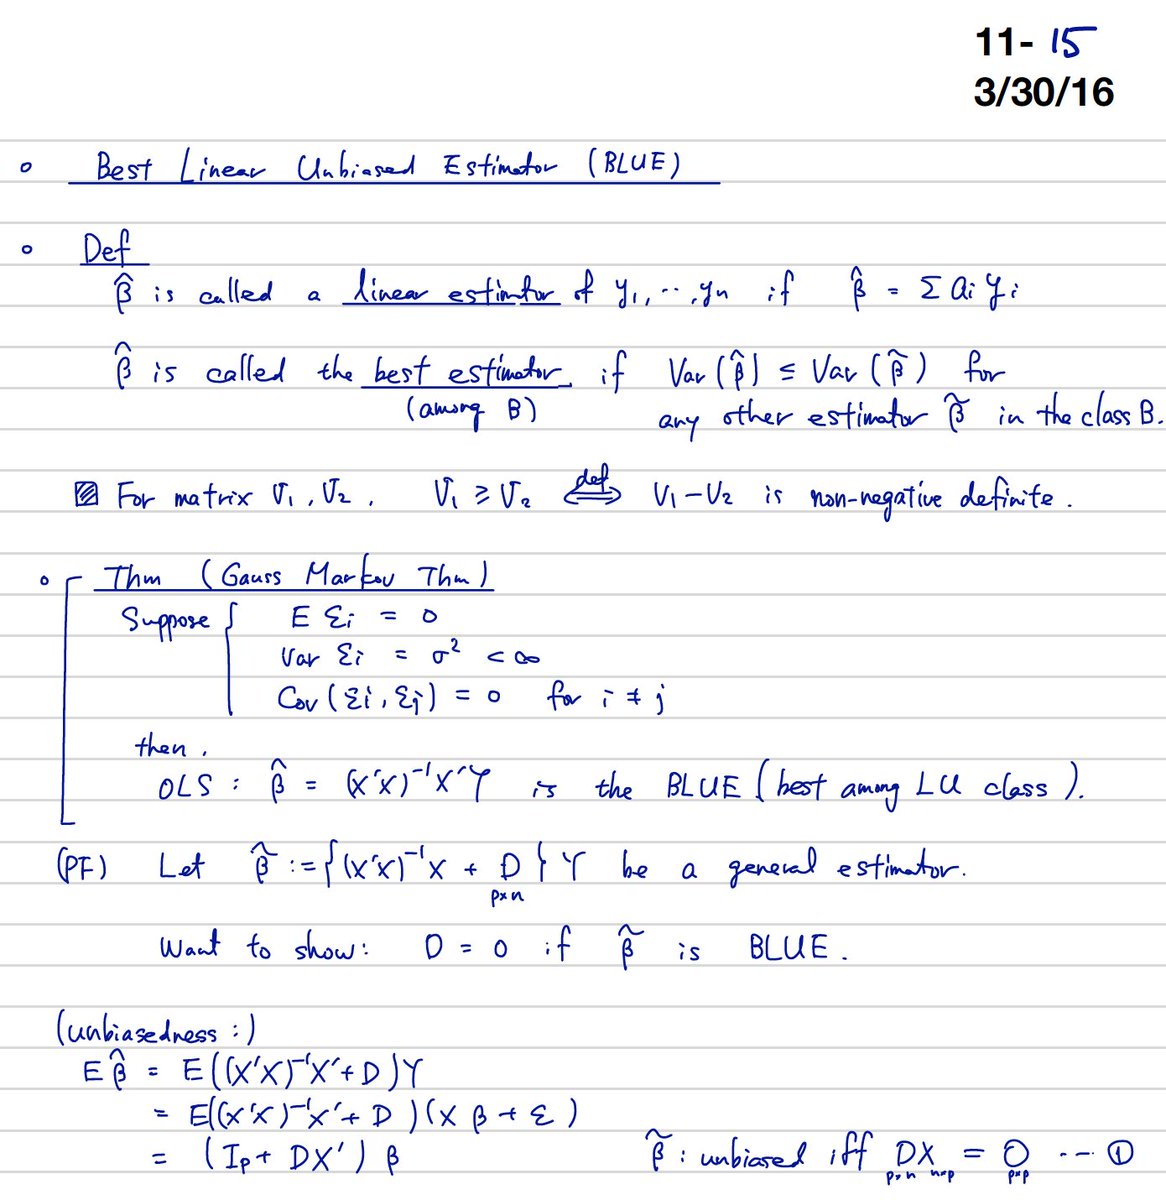 11- 15
3/30/16
○ Best Linear Unbiased Estimator (BLUE)
○ Def
β̂ is called a linear estimtor of y₁, ..., yₙ if β̂ = Σ aᵢ yᵢ
β̂ is called the best estimator if Var(β̂) ≤ Var(β̃) for
(among B) any other estimator β̃ in the class B.
▨ For matrix V₁, V₂, V₁ ≥ V₂ ⟺(def) V₁ - V₂ is non-negative definite.
○ Thm (Gauss Markov Thm)
Suppose { E εᵢ = 0
Var εᵢ = σ² < ∞
Cov(εᵢ, εⱼ) = 0 for i ≠ j
then,
OLS : β̂ = (X'X)⁻¹X'Y is the BLUE (best among LU class).
(PF) Let β̃ := {(X'X)⁻¹X + D} Y be a general estimator.
p×n
Want to show: D = 0 if β̃ is BLUE.
(unbiasedness :)
E β̂ = E((X'X)⁻¹X' + D)Y
= E((X'X)⁻¹X' + D)(Xβ + ε)
= (Iₚ + DX')β β̃ : unbiased iff DX = O ... ①
p×n n×p p×p